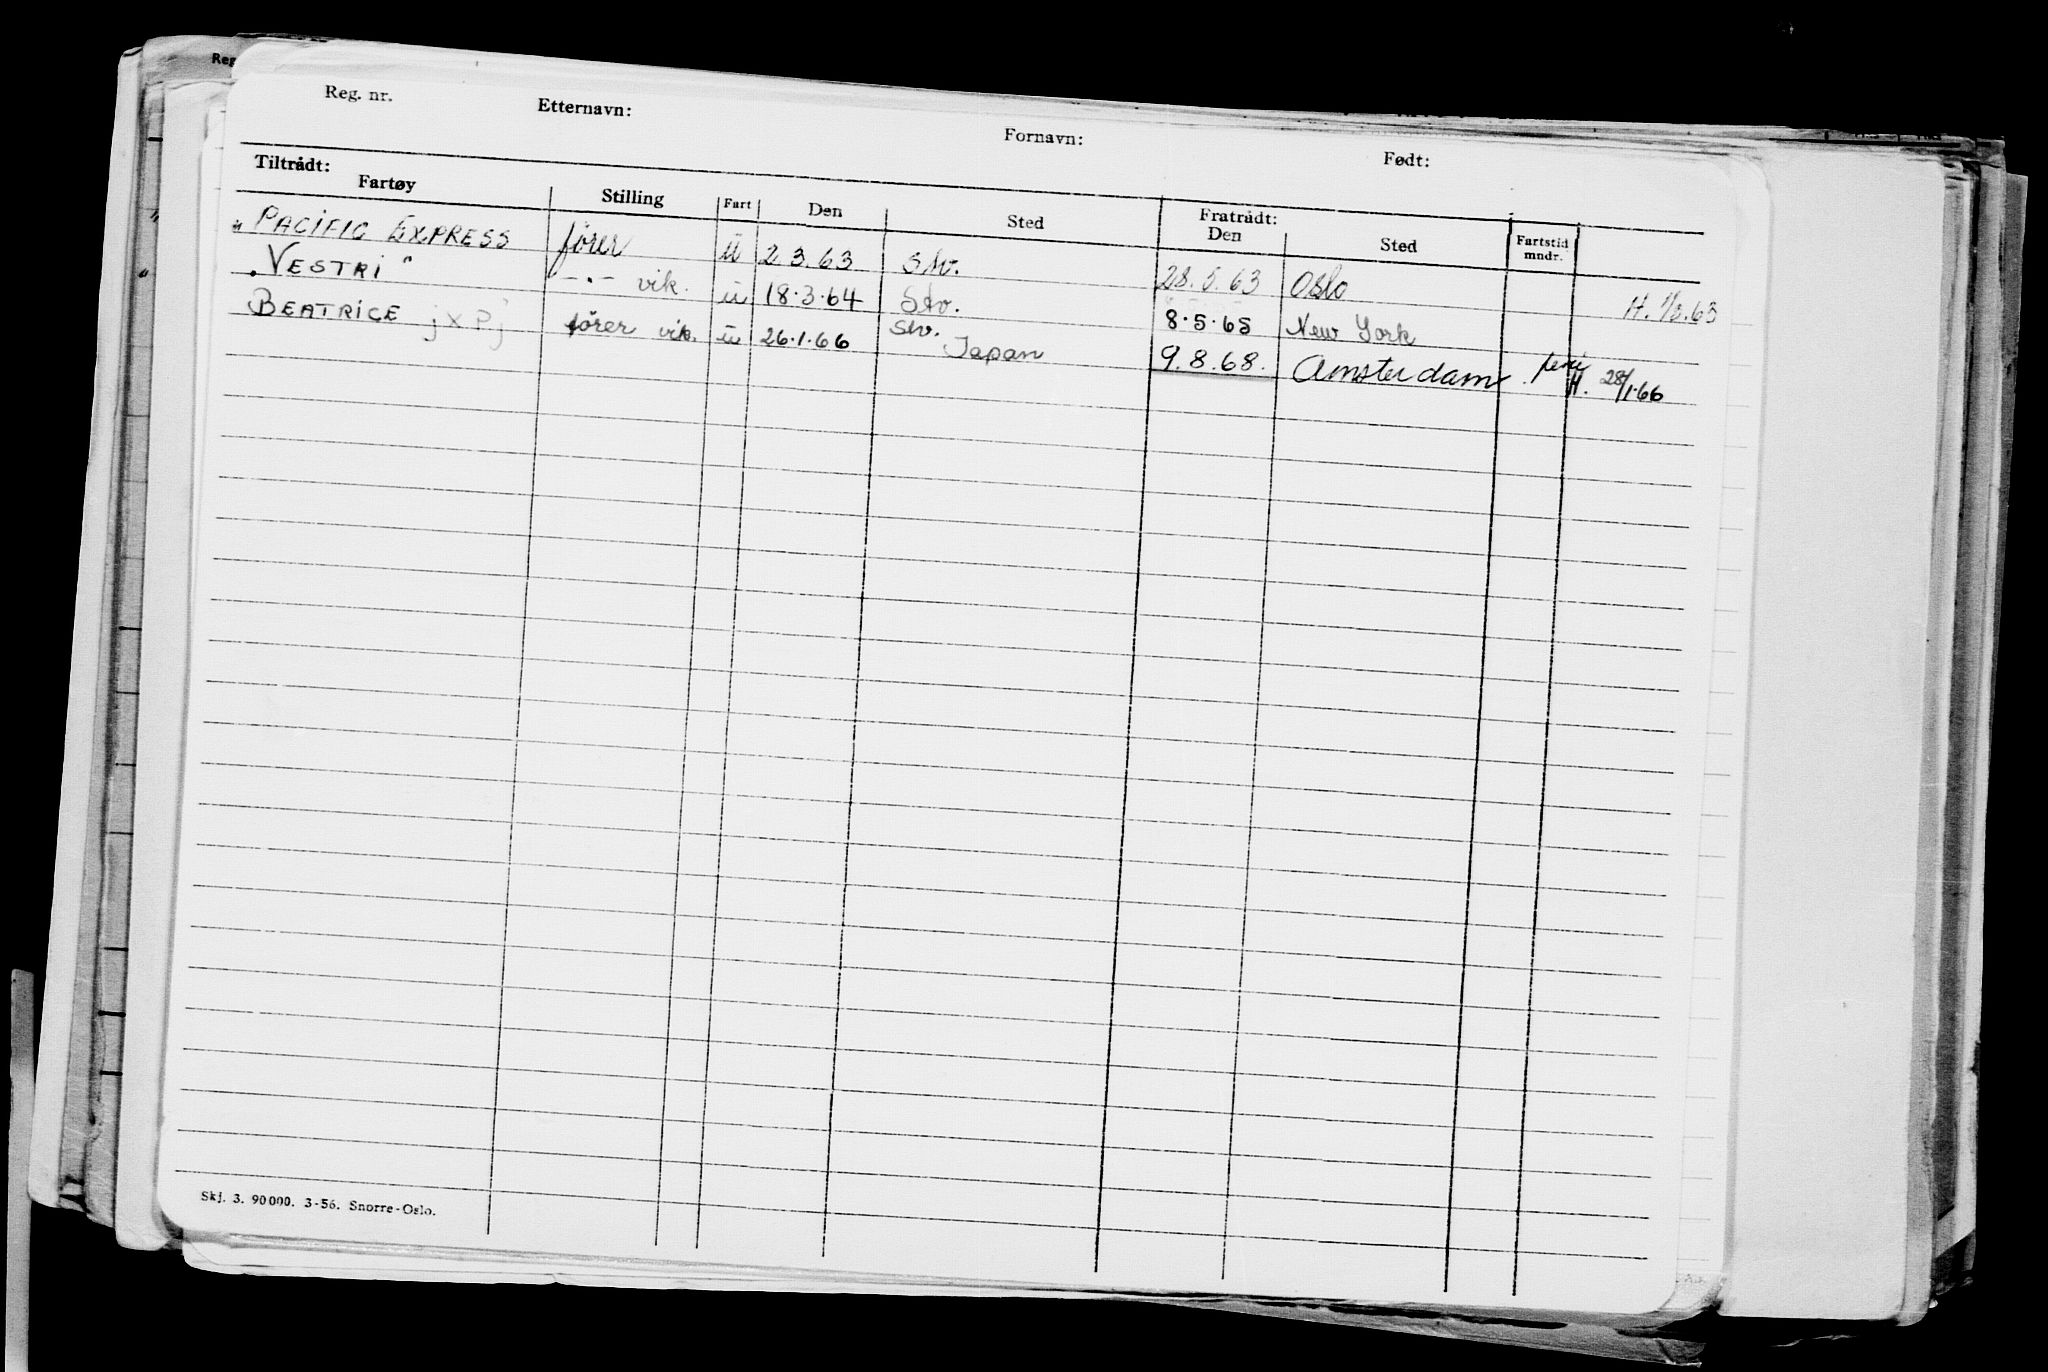 Reg
Reg. nr. Etternavn: Fornavn: Født:
Tiltrådt: Fratrådt:
Fartøy Stilling Fart Den Sted Den Sted Fartstid mndr.
"PACIFIC EXPRESS fører ü 2 3.63 Stv. 28.5.63 Oslo H. 1/3.63
"VESTRI" -"- vik. ü 18.3.64 Stv. 8.5.65 New York
BEATRICE jXPj fører vik. ü 26.1.66 Stv. Japan 9.8.68. Amsterdam H. 28/1.66
Skj. 3. 90000. 3-56. Snorre-Oslo.